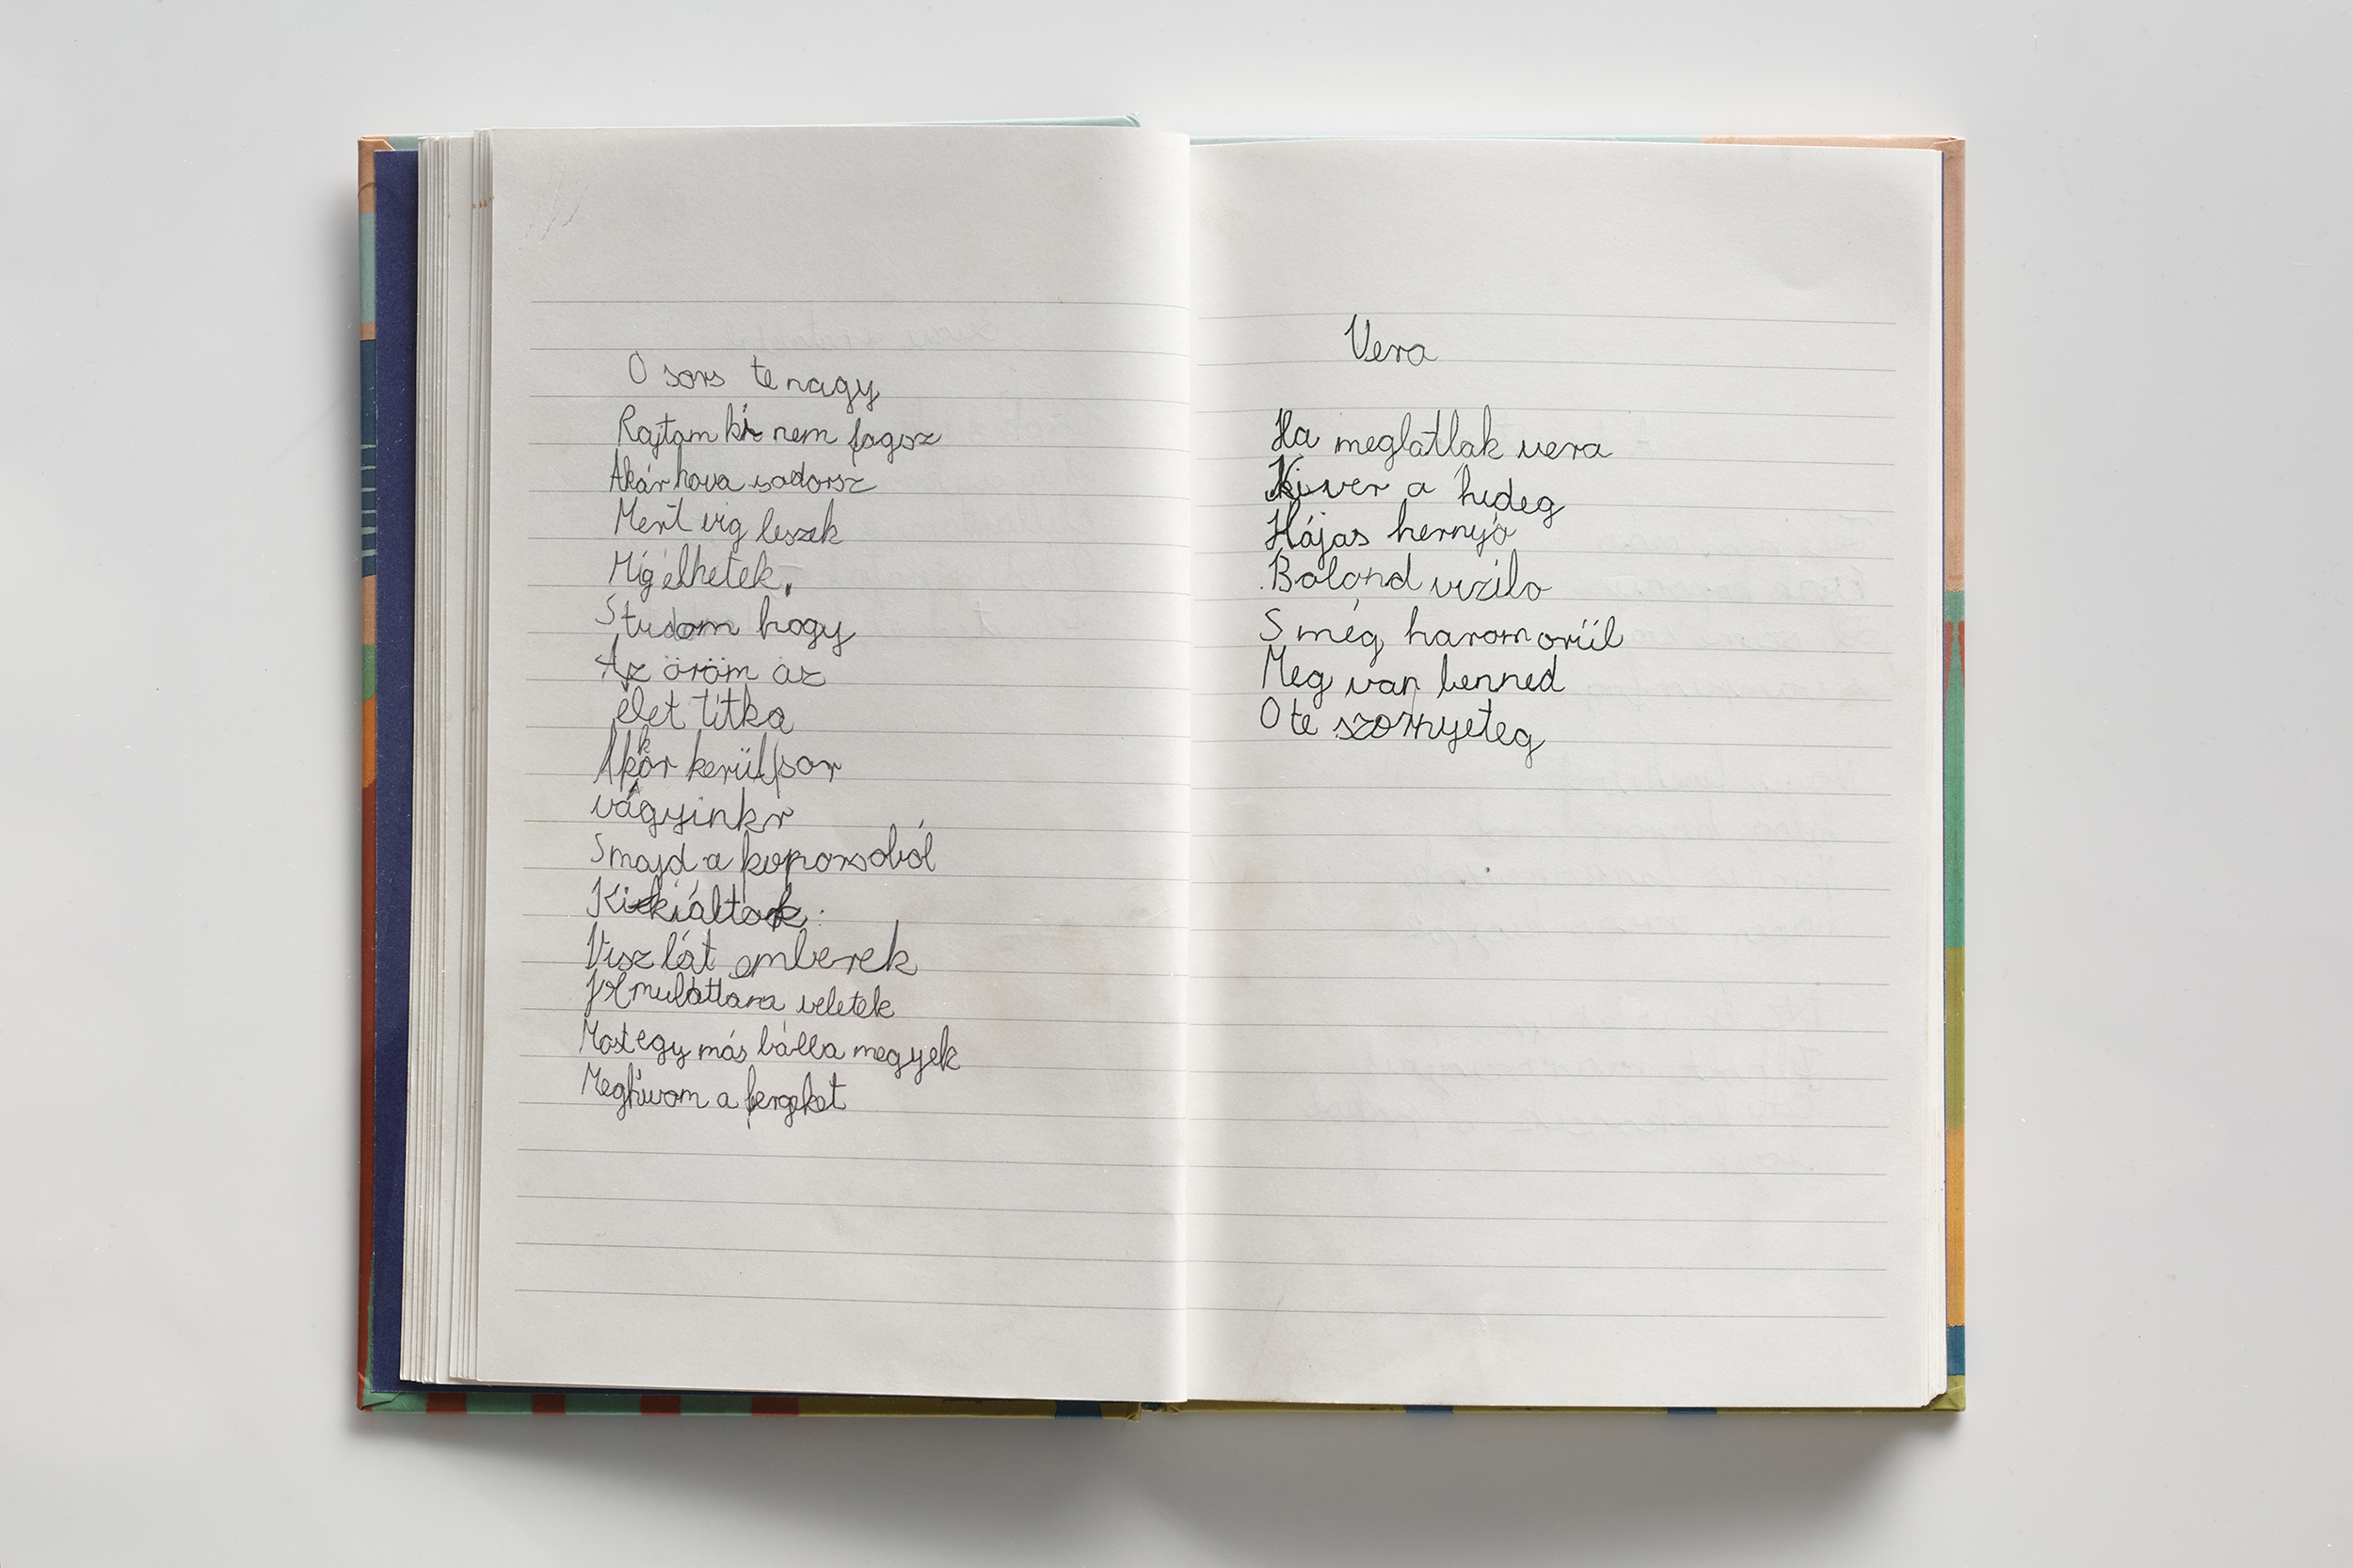 O sors te nagy
Rajtam ki nem fogsz
Akár hova sodorsz
Mert vig leszek
Míg élhetek.
S tudom hogy
Az öröm az
élet titka
Akkor kerül sor
vágyinkr
S majd a koporsoból
Kikiáltok:
Visz lát emberek
Jol mulattam veletek
Most egy más bálba megyek
Meghivom a fergeket
Vera
Ha meglatlak vera
Ki ver a hideg
Hájas hernyó
Bolond vizilo
S még harom orüil
Meg van benned
O te szornyeteg